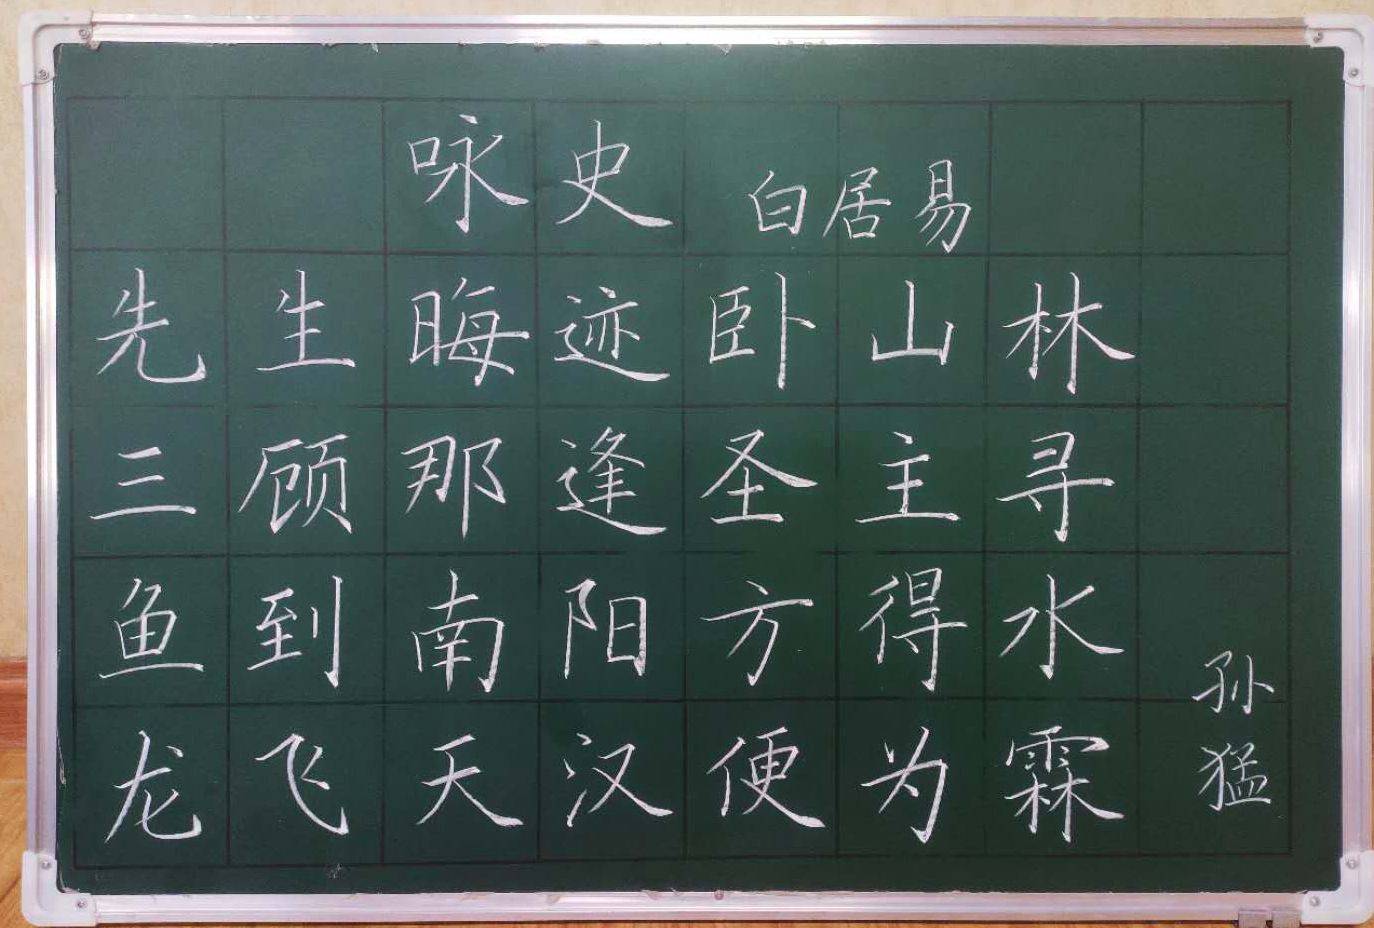 咏史 白居易
先生晦迹卧山林
三顾那逢圣主寻
鱼到南阳方得水
龙飞天汉便为霖
孙猛